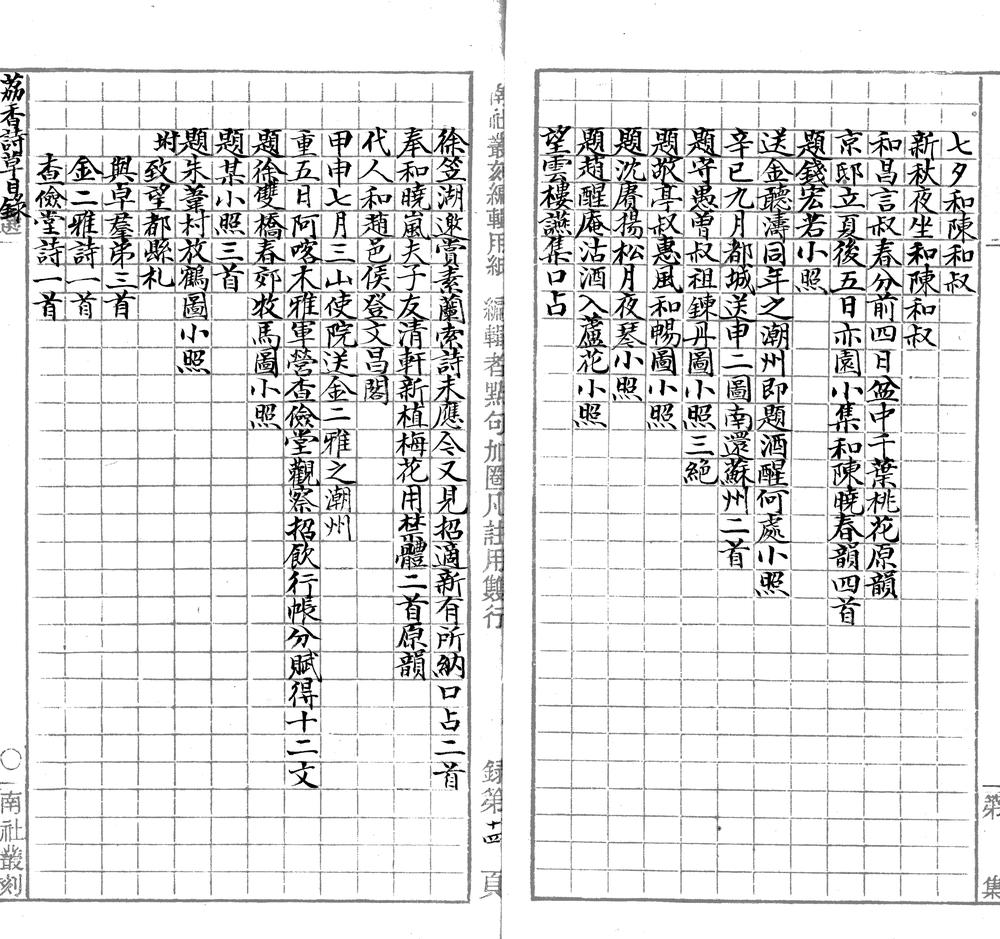 第　集
七夕和陳和叔
新秋夜坐和陳和叔
和昌言叔春分前四日盆中千葉桃花原韻
京邸立夏後五日亦園小集和陳曉春韻四首
題錢宏若小照
送金聽濤同年之潮州即題酒醒何處小照
辛巳九月都城送申二圖南還蘇州二首
題守愚曾叔祖鍊丹圖小照三絕
題敬亭叔惠風和暢圖小照
題沈賡揚松月夜琴小照
題趙醒庵沽酒入蘆花小照
望雲樓讌集口占
南社叢刻編輯用紙　編輯者點句加圈凡註用雙行　錄第十四頁
徐笠湖邀賞素蘭索詩未應今又見招適新有所納口占二首
奉和曉嵐夫子友清軒新植梅花用禁體二首原韻
代人和趙邑侯登文昌閣
甲申七月三山使院送金二雅之潮州
重五日阿喀木雅軍營查儉堂觀察招飲行帳分賦得十二文
題徐雙橋春郊牧馬圖小照
題某小照三首
題朱葦村放鶴圖小照
附　致望都縣札
與卓羣弟三首
金二雅詩一首
查儉堂詩一首
荔香詩草目錄　〇　南社叢刻